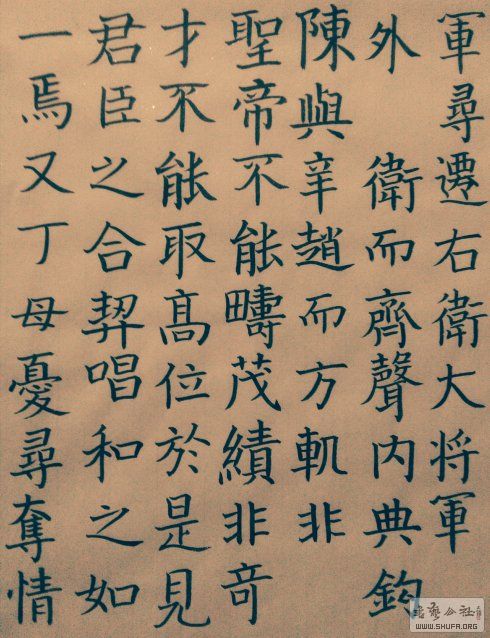 軍尋遷右衛大将軍
外 衛而齊聲内典鈎
陳與辛趙而方軌非
聖帝不能疇茂績非奇
才不能取髙位於是見
君臣之合契唱和之如
一焉又丁母憂尋奪情
書藝公社
WWW.SHUFA.ORG